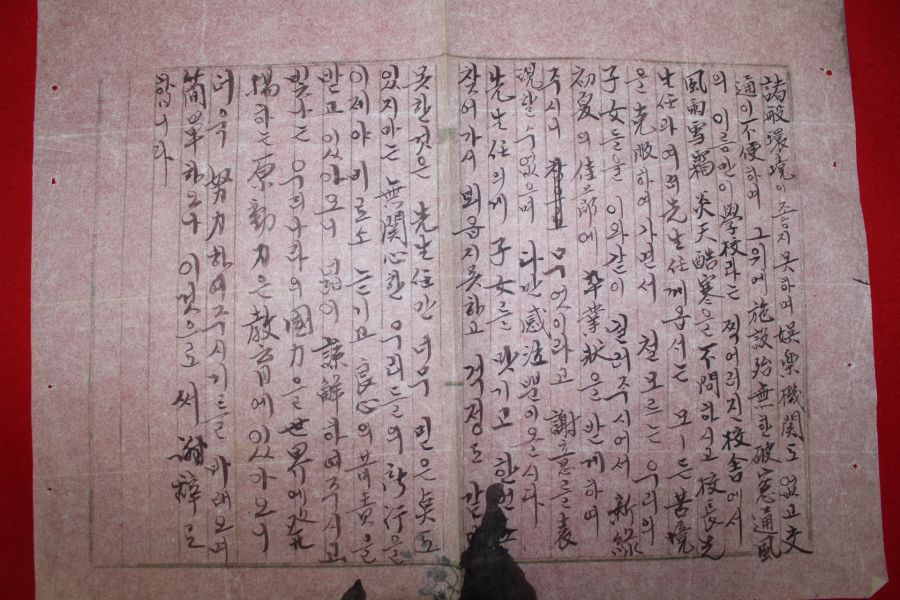 諸般環境이 좋지 못하며 娛樂機關도 없고 交
通이 不便하며 그 우에 施設殆無한 破窓通風
의 이름만이 學校라는 찍어러지 校舍에서
風雨雪霜 炎天酷寒을 不問하시고 校長先
生任과 여러 先生任께옵서는 모ー든 苦境
을 克服하여 가면서 철모르는 우리의
子女들을 이와같이 길러주시어서 新綠
初夏의 佳節에 卒業狀을 받게하며
주시니 무엇이라고 謝意를 表
現할 수 없으며 다만 感泣뿐이올시다
先生任의게 子女를 맡기고 한번도
찾어가서 뵈옵지 못하고 걱정도 같이
못한 것은 先生任만 너무 믿은 点도
있지마는 無關心한 우리들의 所行을
이제야 비로소 늣기고 良心의 苛責을
받고 있아오니 넓이 諒解하여주시고
빛나는 우리나라의 國力을 世界에 發
揚하는 原動力은 敎育에 있사오니
더욱 努力하여주시기를 바래오며
簡單하오나 이것으로써 謝辭로
합니다